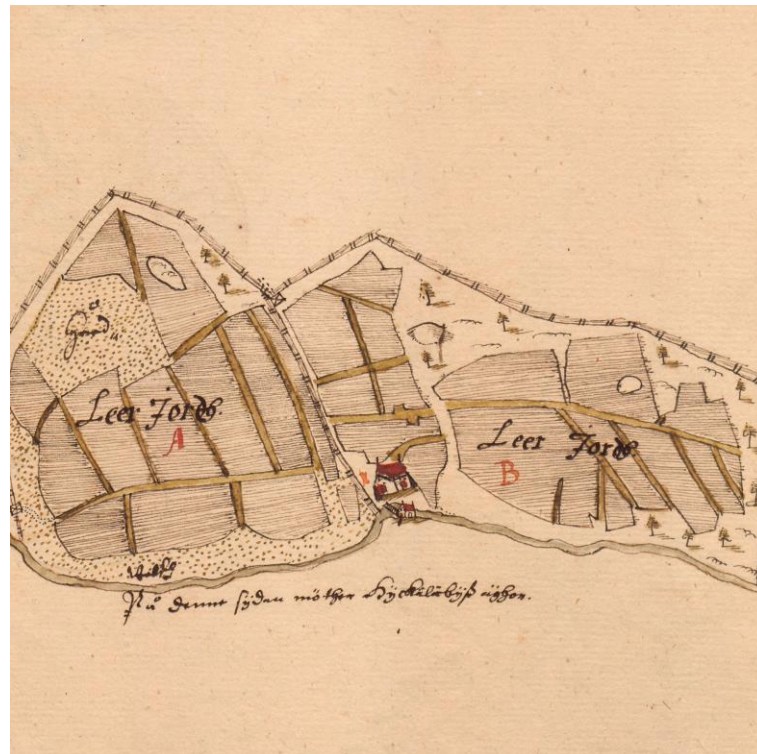 Leer Jordh.
A
Leer Jordh.
B
På denne sydan möther Hyckälebyß äghor.